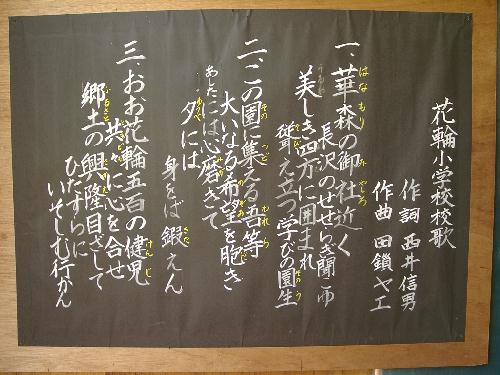 花輪小学校校歌
作詞 西井信男
作曲 田鎖ヤエ
一、華森の御社近く
長沢のせせらぎ聞こゆ
美しき四方に囲まれ
聳え立つ学びの園生
二、この園に集える吾等
大いなる希望を胞き
あしたには心磨きて
夕には
身をば鍛えん
三、おお花輪五百の健児
共々に心を合せ
郷土の興隆目ざして
ひたすらに
いそしむ行かん